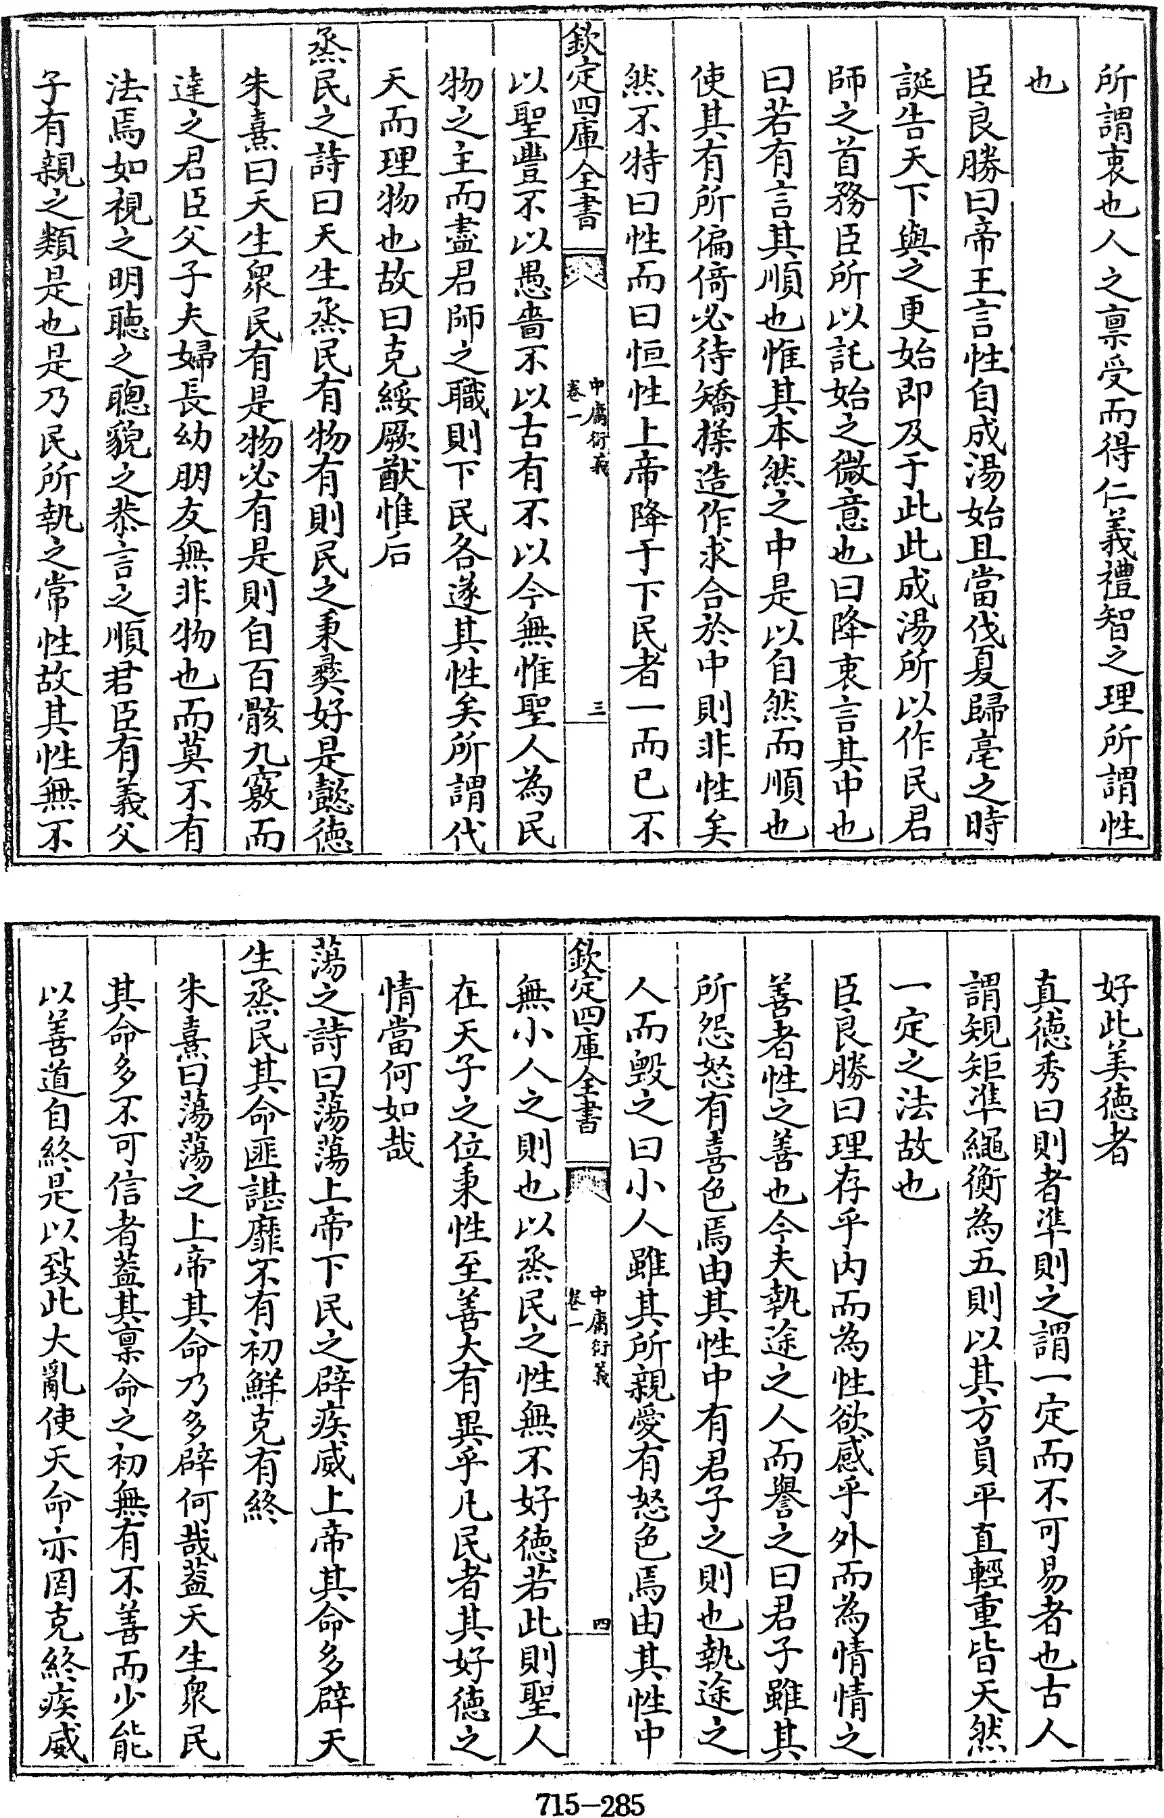 所謂衷也人之稟受而得仁義禮智之理所謂性
也
臣良勝曰帝王言性自成湯始且當伐夏歸亳之時
誕告天下與之更始即及于此此成湯所以作民君
師之首務臣所以託始之微意也曰降衷言其中也
曰若有言其順也惟其本然之中是以自然而順也
使其有所偏倚必待矯揉造作求合於中則非性矣
然不特曰性而曰恒性上帝降于下民者一而已不
欽定四庫全書
中庸衍義
卷一
三
以聖豐不以愚嗇不以古有不以今無惟聖人為民
物之主而盡君師之職則下民各遂其性矣所謂代
天而理物也故曰克綏厥猷惟后
烝民之詩曰天生烝民有物有則民之秉彝好是懿德
朱熹曰天生衆民有是物必有是則自百骸九竅而
達之君臣父子夫婦長幼朋友無非物也而莫不有
法焉如視之明聽之聰貌之恭言之順君臣有義父
子有親之類是也是乃民所執之常性故其性無不
好此美德者
真德秀曰則者準則之謂一定而不可易者也古人
謂規矩準繩衡為五則以其方員平直輕重皆天然
一定之法故也
臣良勝曰理存乎內而為性欲感乎外而為情情之
善者性之善也今夫執途之人而譽之曰君子雖其
所怨怒有喜色焉由其性中有君子之則也執途之
人而毀之曰小人雖其所親愛有怒色焉由其性中
欽定四庫全書
中庸衍義
卷一
四
無小人之則也以烝民之性無不好德若此則聖人
在天子之位秉性至善大有異乎凡民者其好德之
情當何如哉
蕩之詩曰蕩蕩上帝下民之辟疾威上帝其命多辟天
生烝民其命匪諶靡不有初鮮克有終
朱熹曰蕩蕩之上帝其命乃多辟何哉蓋天生衆民
其命多不可信者蓋其稟命之初無有不善而少能
以善道自終是以致此大亂使天命亦罔克終疾威
715-285